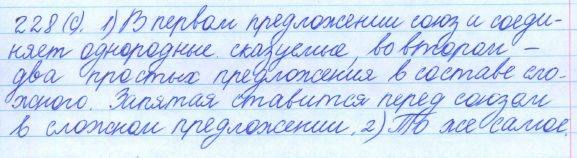 228(с). 1) В первом предложении союз и соеди-
няет однородные сказуемые, во втором –
два простых предложения в составе сло-
жного. Запятая ставится перед союзом
в сложном предложении. 2) То же самое.